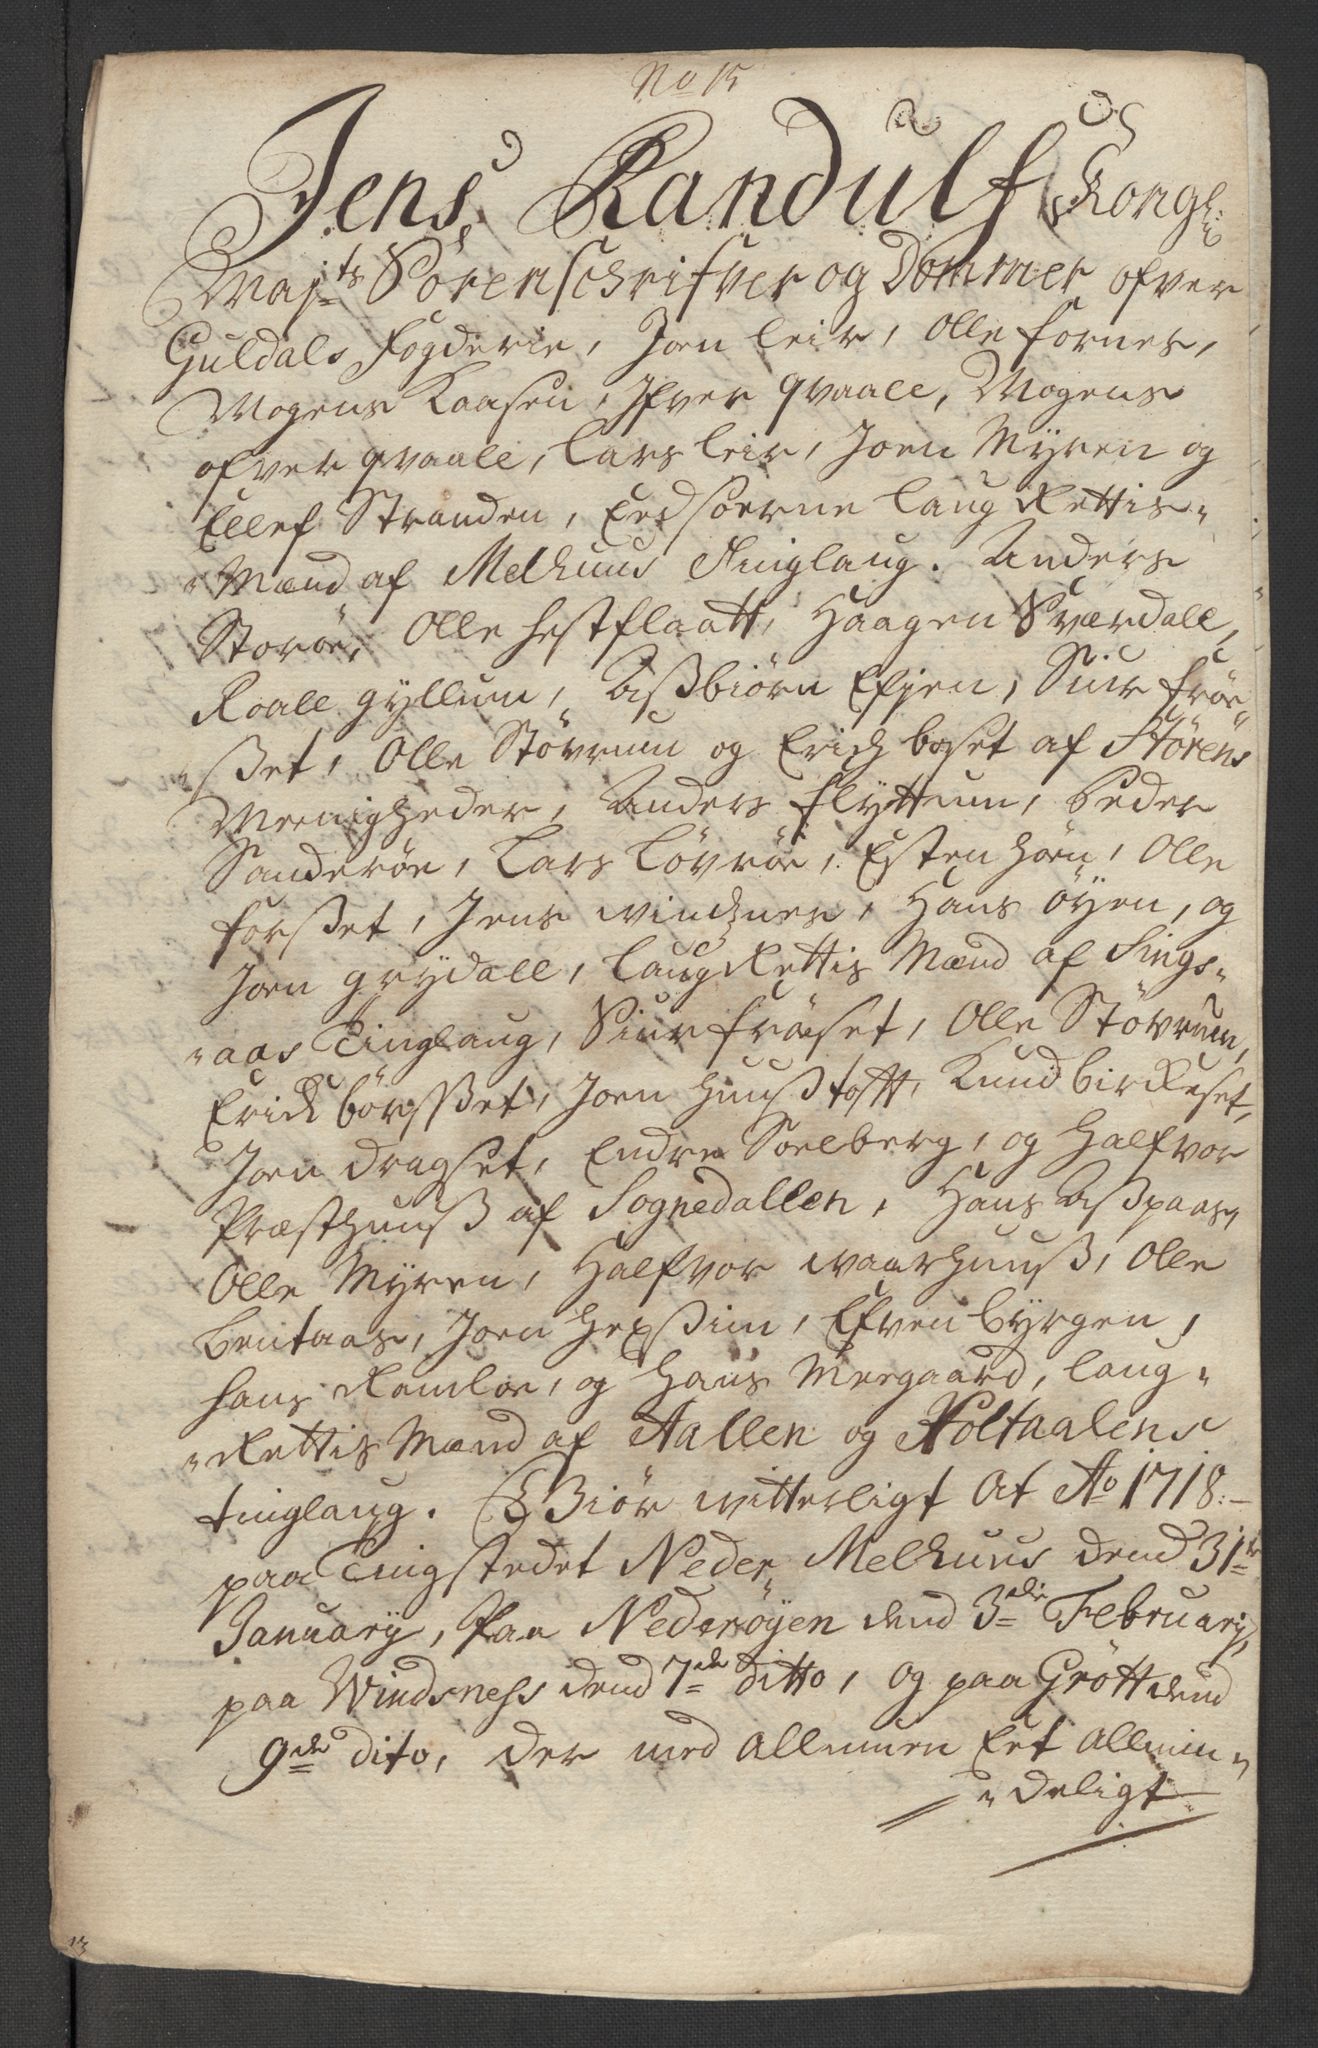 No 15
Jens Randulf Kongl:
Maj:ts Sörenschrifver og Dommer ofver
Guldals Fogderie, Joen Leir, Olle fornes,
Mogens Kaasen, Ifver qvaale, Mogens
ofver qvaale, Lars Leir, Joen Myren og
Ellef Stranden, Eedsoerne Laug Rettis-
Mænd af Melhuus Tinglaug. Anders
Storöe, Olle hestflaatt, Haagen Sværdall,
Roall gyllum, Aßbiörn Efjen, Siur fröe
ßet, Olle Stövrum og Erich boset af Störens
Meenigheder, Anders flyttum, Peder
Sanderöe, Lars Lövröe, Esten hoen, Olle
forßet, Jens windznes, Hans öyen, og
Joen grydall, Laug Rettis Mænd af Sings-
aas Tinglaug, Siur fröeset, Olle Stövrum,
Erich börsßet, Joen huuß toft, Knud birkeset,
Joen dragset, Endre Soelberg, og Halfvor
Præsthuuß af Sognedallen, Hans Aßpaas,
Olle Myren, Halfvor waarhuuß, Olle
bentaas, Joen hexßim, Efven byrgen,
hans Ramloe, og Hans Moegaard, Laug-
Rettis Mænd af Aallen og Holtaalens
tinglaug. Giör witterligt At Ao 1718:
paa Tingstedet Neder Melhuus dend 31te
January, Paa Nederöyen dend 3die February,
paa Windsness dend 7de ditto, og paa Grött dend
9de dito, der med Allmuen Eet Allmin-
deligt